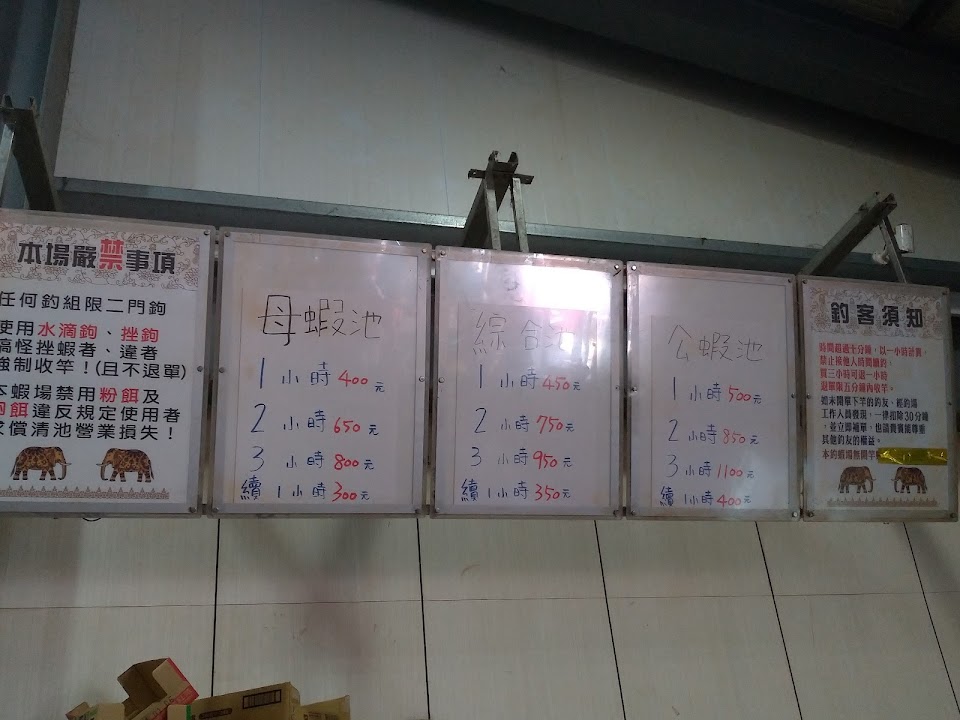 本場嚴禁事項
任何釣組限二門鉤
使用水滴鉤、挫鉤
搞怪挫蝦者、違者
強制收竿！(且不退單)
本蝦場禁用粉餌及
餌違反規定使用者
求償清池營業損失！
母蝦池
1小時400元
2小時650元
3小時800元
續1小時300元
綜合池
1小時450元
2小時750元
3小時950元
續1小時350元
公蝦池
1小時500元
2小時850元
3小時1100元
續1小時400元
釣客須知
時間超過十分鐘，以一小時計費，
禁止接他人時間續釣，
買三小時可退一小時
退單限五分鐘內收竿。
如未開單下竿的釣友、經釣場
工作人員發現，一律扣除30分鐘
，並立即補單，也請貴賓能尊重
其他釣友的權益。
本釣蝦場無開竿